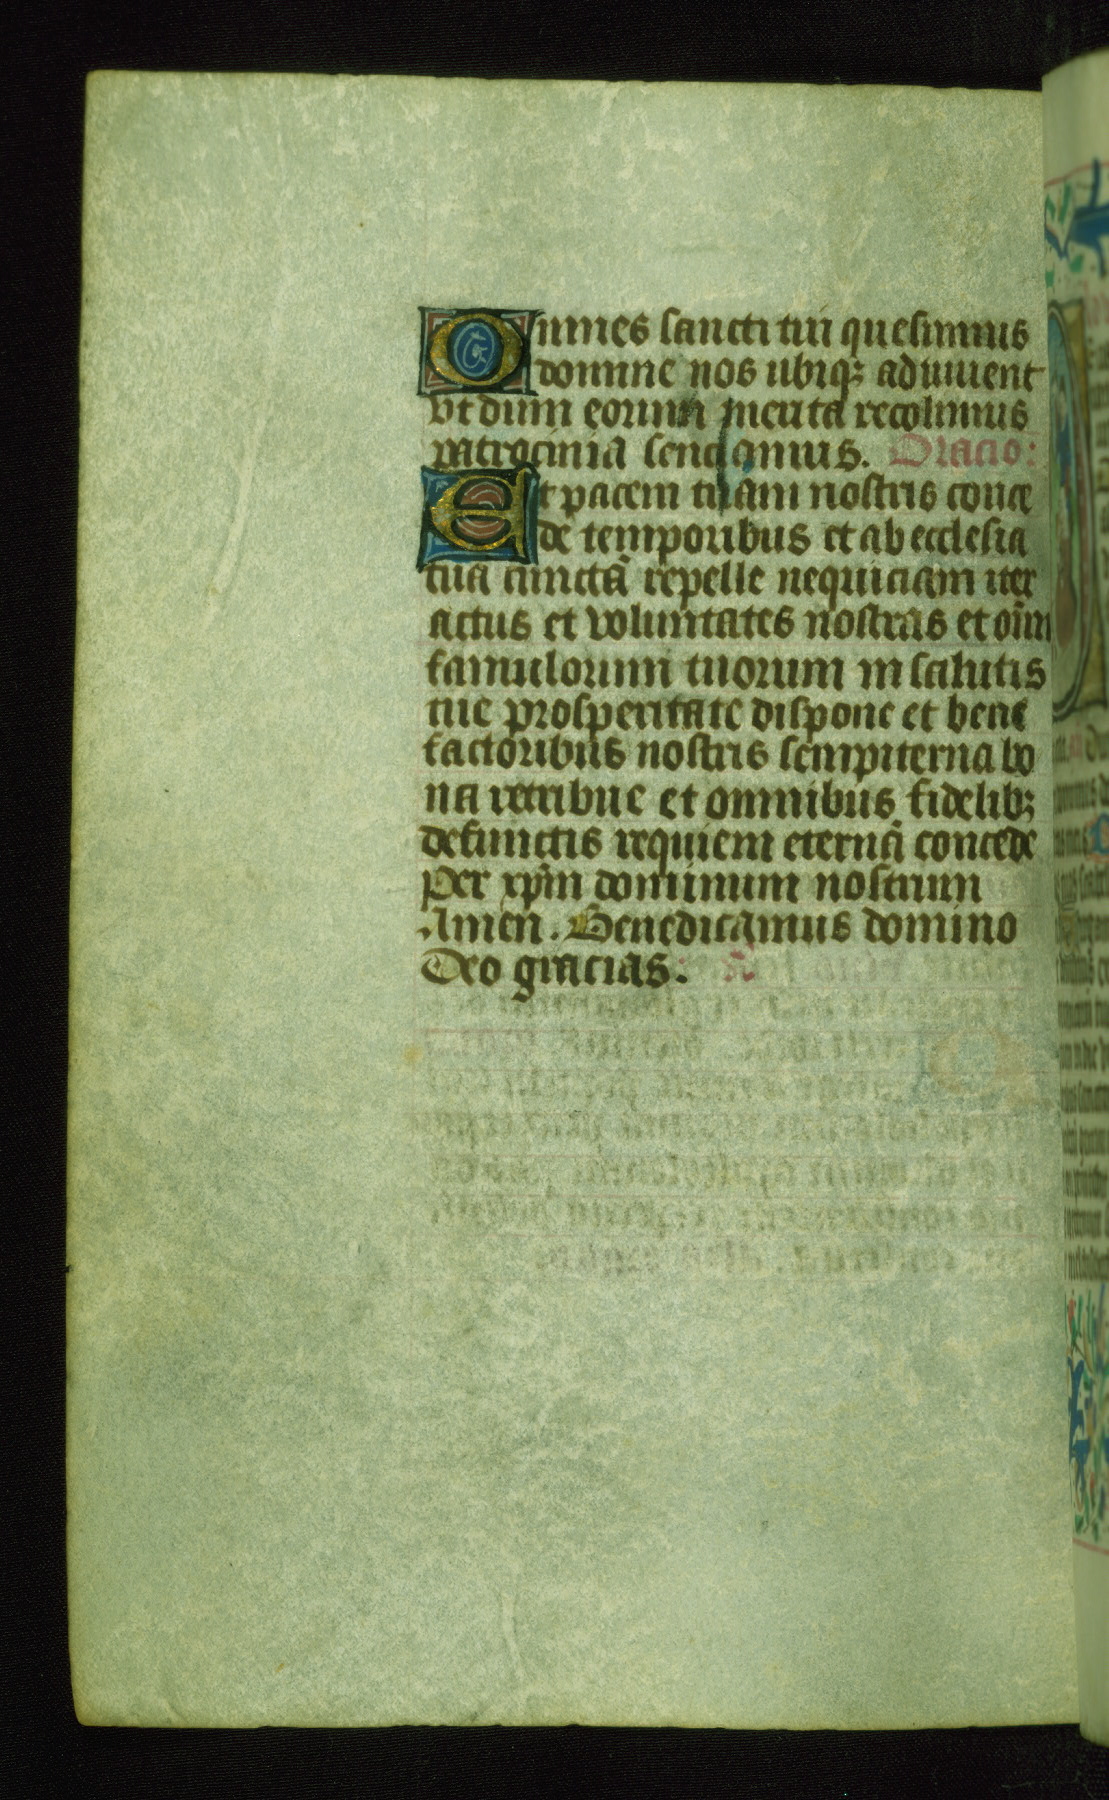 Omnes sancti tui quesumus
domine nos ubiqꝫ adiuuent
vt dum eorum merita recolimus
patrocinia senciamus. Oracio:
Et pacem tuam nostris conce
de temporibus et ab ecclesia
tua cunctā repelle nequiciam iter
actus et voluntates nostras et oīm
famulorum tuorum in salutis
tue prosperitate dispone et bene
factoribus nostris sempiterna bo
na retribue et omnibus fidelibꝫ
defunctis requiem eternā concede
Per xp̄m dominum nostrum
Amen. Benedicamus domino
Deo gracias.